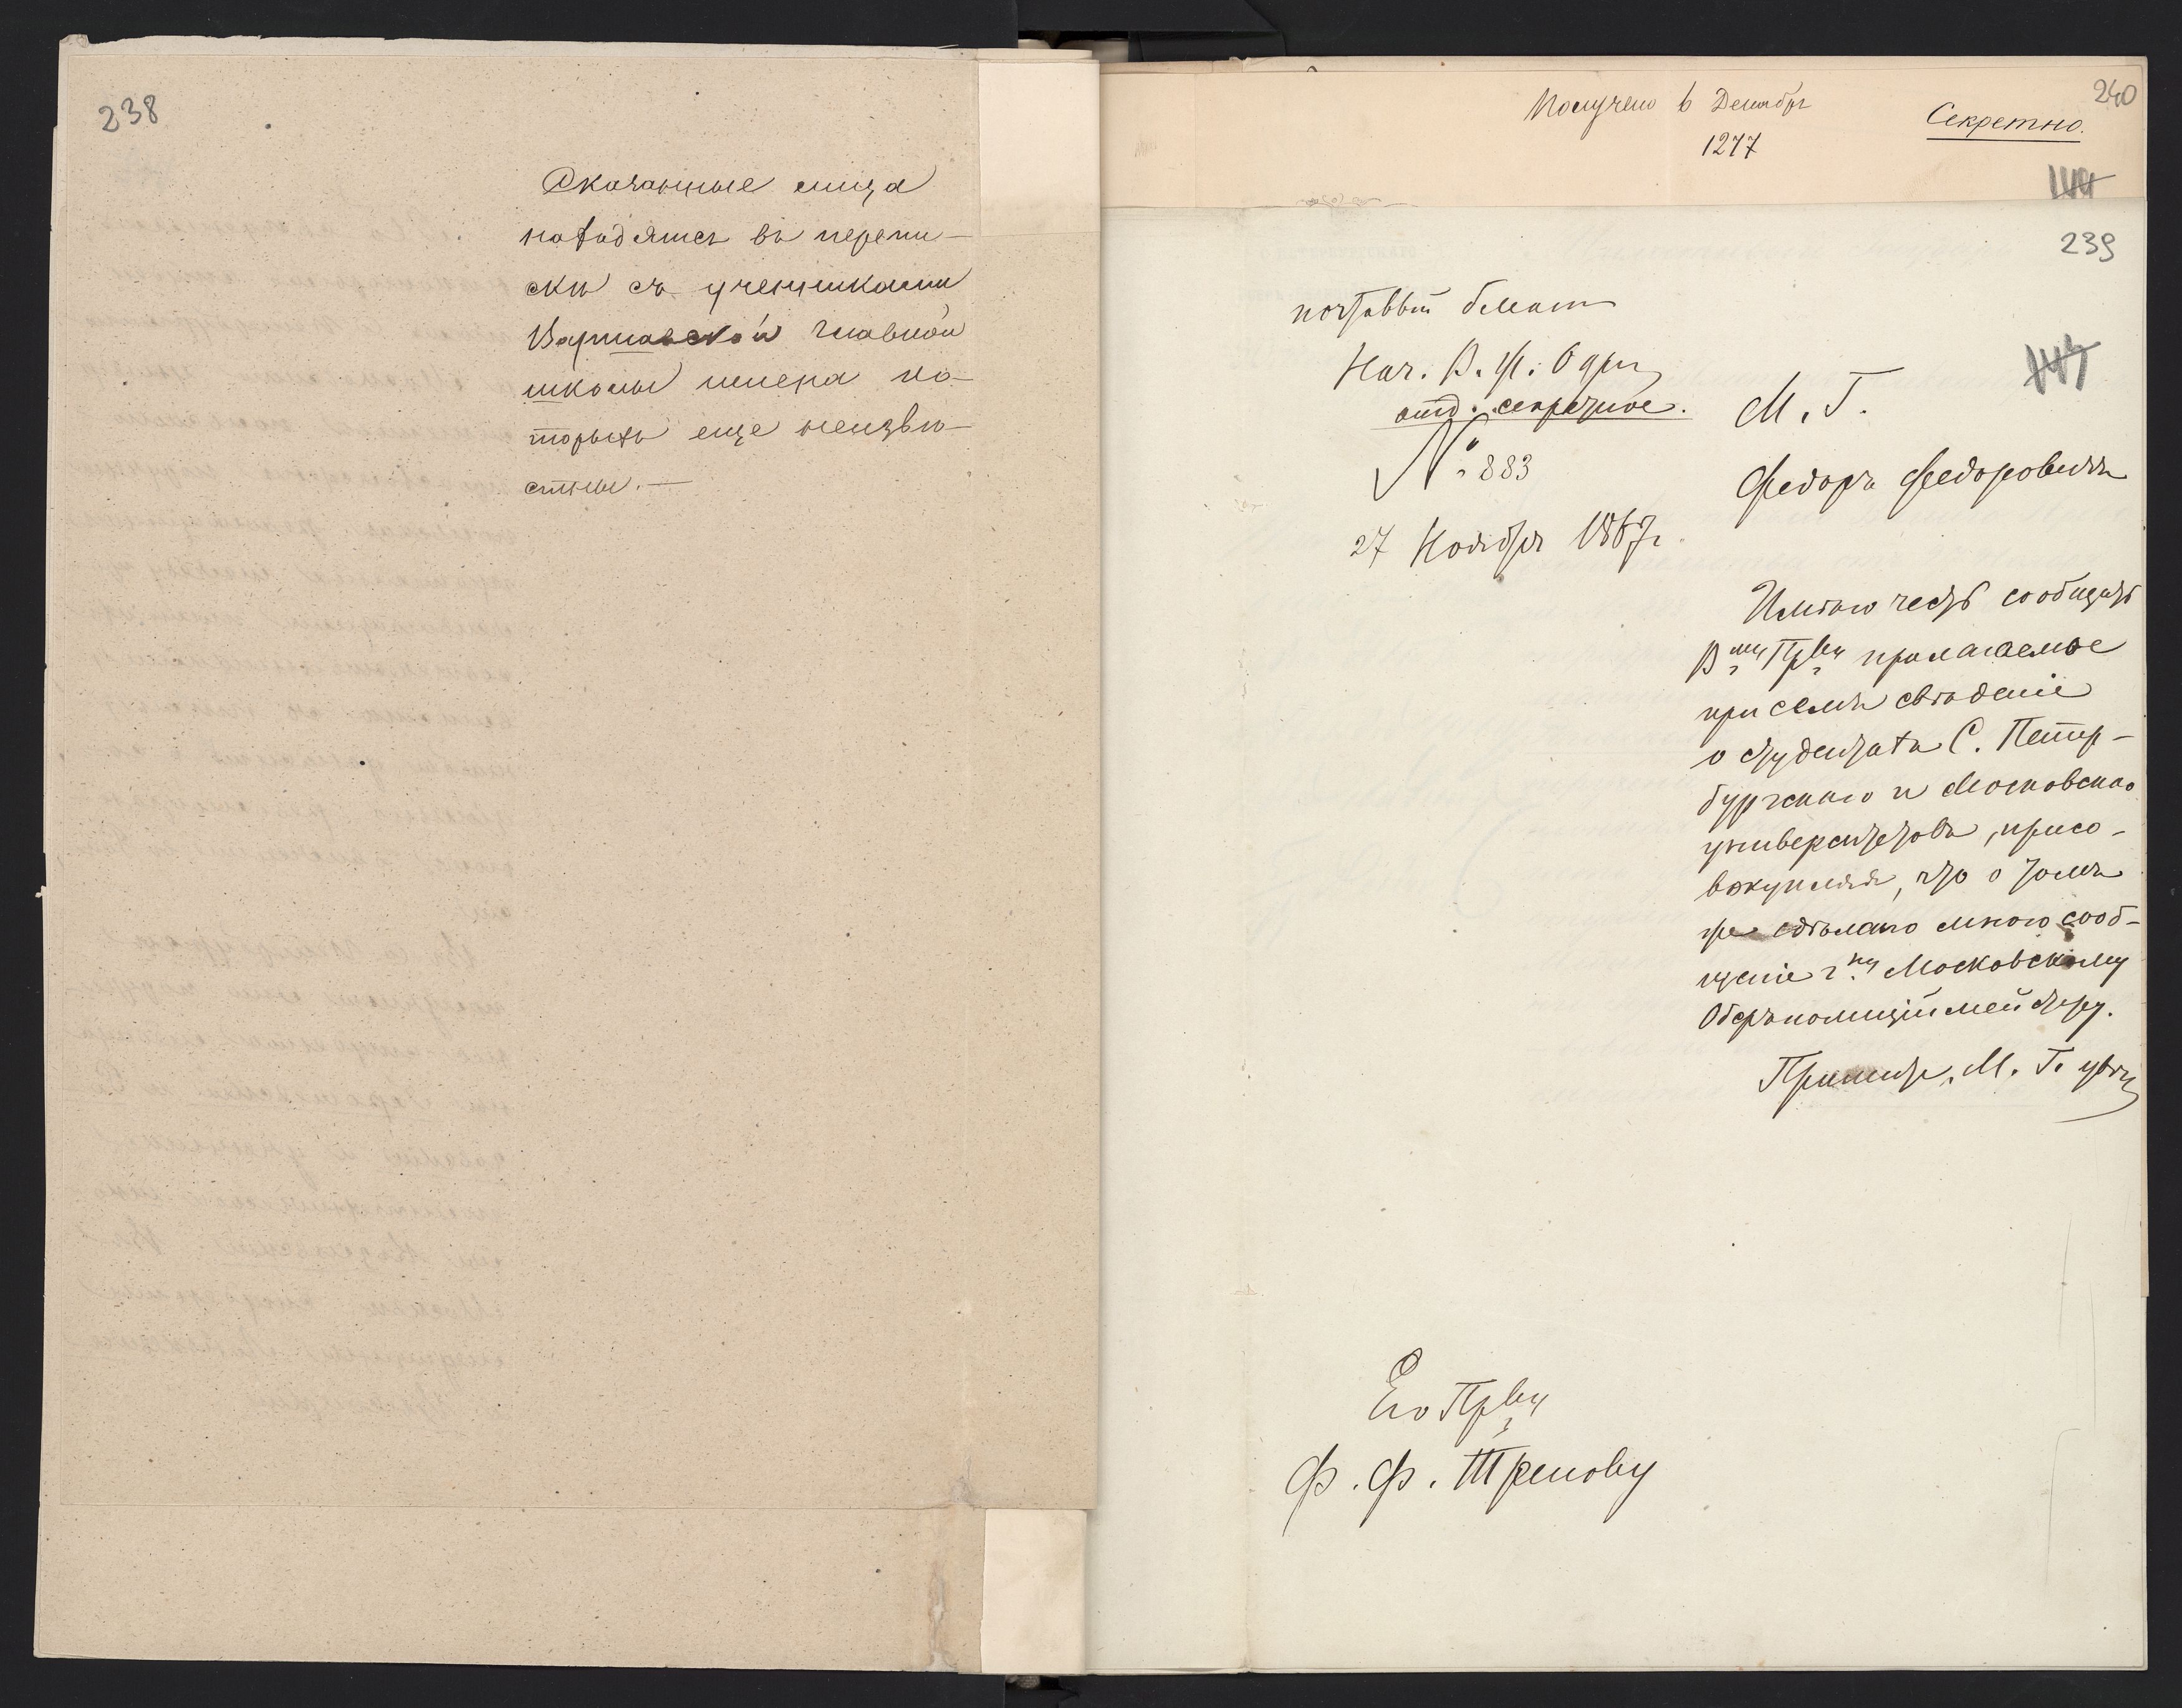 238
Сказанные лица
находятся въ перепи-
скѣ съ учениками
Варшавской главной
школы имена ко-
торыхъ еще неизвѣ-
стны. —
240
Получено 6 Декабр
1277
Секретно.
144
239
почтовый бланкъ
Нач. В. П.
отд. секретное.
№ 883
27 Ноября 1867 г.
147
М. Г.
Федоръ Федоровичъ
Имѣю честь сообщить
В му Прву прилагаемое
при семъ свѣдѣніе
о студентахъ С. Петер-
бургскаго и Московскаго
университетовъ, присо-
вокупляя, что о томъ
же сдѣлано мною сооб-
щеніе г ну Московскому
Оберъполицiймейстеру.
Примите, М. Г. ув
Его Прву
Ф. Ф. Трепову